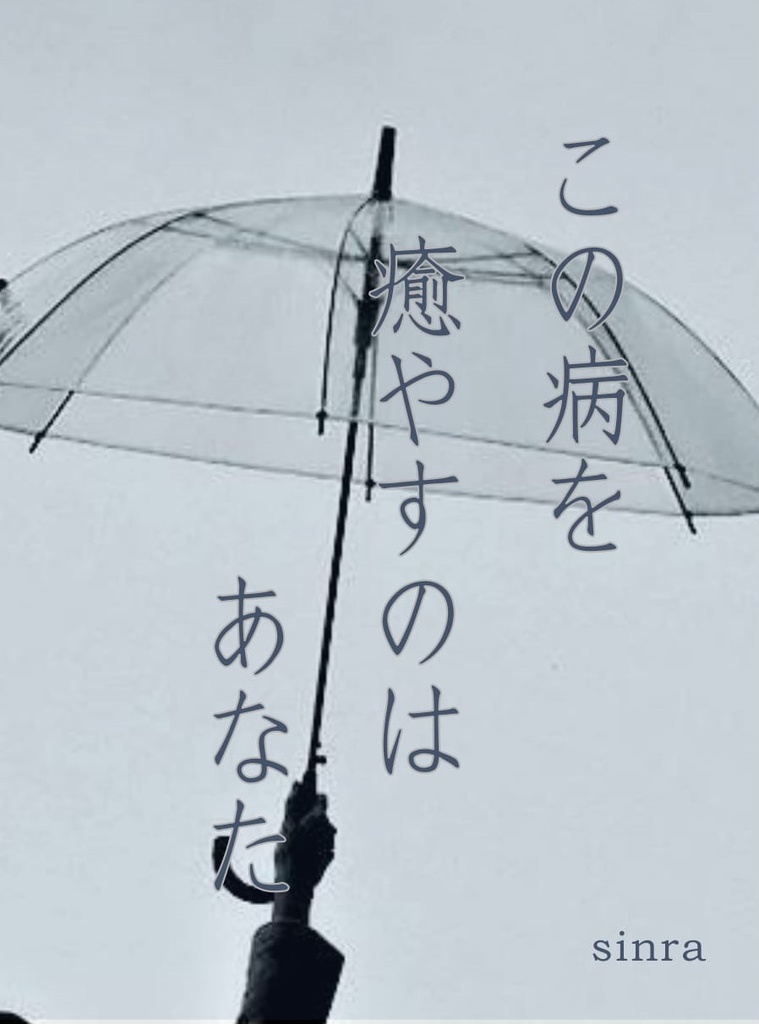 この病を
癒やすのは
あなた
sinra